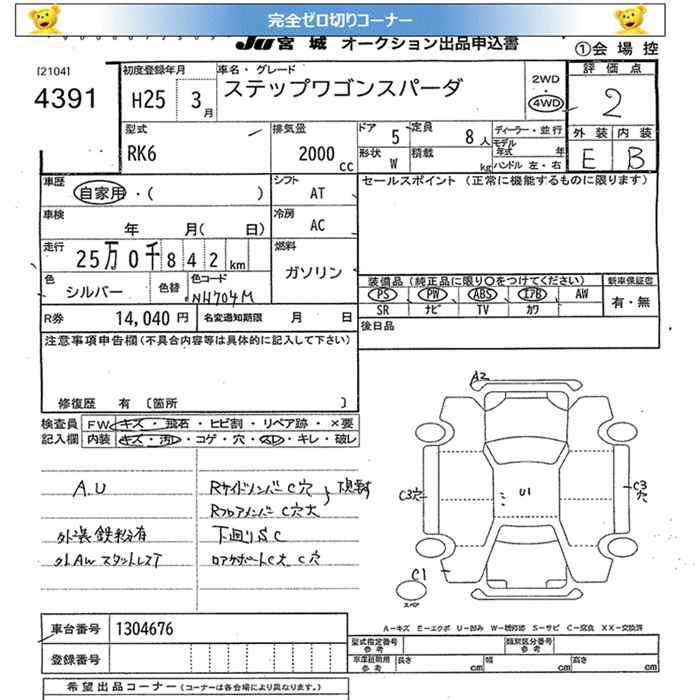 完全ゼロ切りコーナー
JU 宮城 オークション出品申込書
①会場控
[2104]
4391
初度登録年月
H25 3月
車名・グレード
ステップワゴンスパーダ
2WD
4WD
評価点
2
外装 内装
E B
型式
RK6
排気量
2000cc
ドア 5
定員 8人
ディーラー・並行
モデル年式 年
形状 W
積載 kg
ハンドル 左・右
車歴
自家用・( )
シフト
AT
セールスポイント (正常に機能するものに限ります)
車検
年 月( 日)
冷房
AC
走行
25万0千842km
燃料
ガソリン
色
シルバー
色替
色コード
NH704M
装備品 (純正品に限り○をつけてください)
新車保証書
PS PW ABS エアB AW
有・無
SR ナビ TV カワ
R券 14,040円
名変通知期限 月 日
後日品
注意事項申告欄(不具合内容等は具体的に記入して下さい)
修復歴 有 〔箇所 〕
検査員記入欄
FW キズ・飛石・ヒビ割・リペア跡・×要
内装 キズ・汚レ・コゲ・穴・スレ・キレ・破レ
A.U
RサイドメンバーC穴
RフロアメンバーC穴大
外装鉄粉有
下廻りSC
外AWスタットレスT
ロアサポートC大 C穴
A2
C3穴
U1
C3穴
C1
スペア
A-キズ E-エクボ U-凹み W-補修跡 S-サビ C-腐食 XX-交換済
車台番号 1304676
登録番号
型式指定番号 参考
類別区分番号 参考
車庫証明用 参考
長さ cm
幅 cm
高さ cm
希望出品コーナー (コーナーは各会場により異なります。)